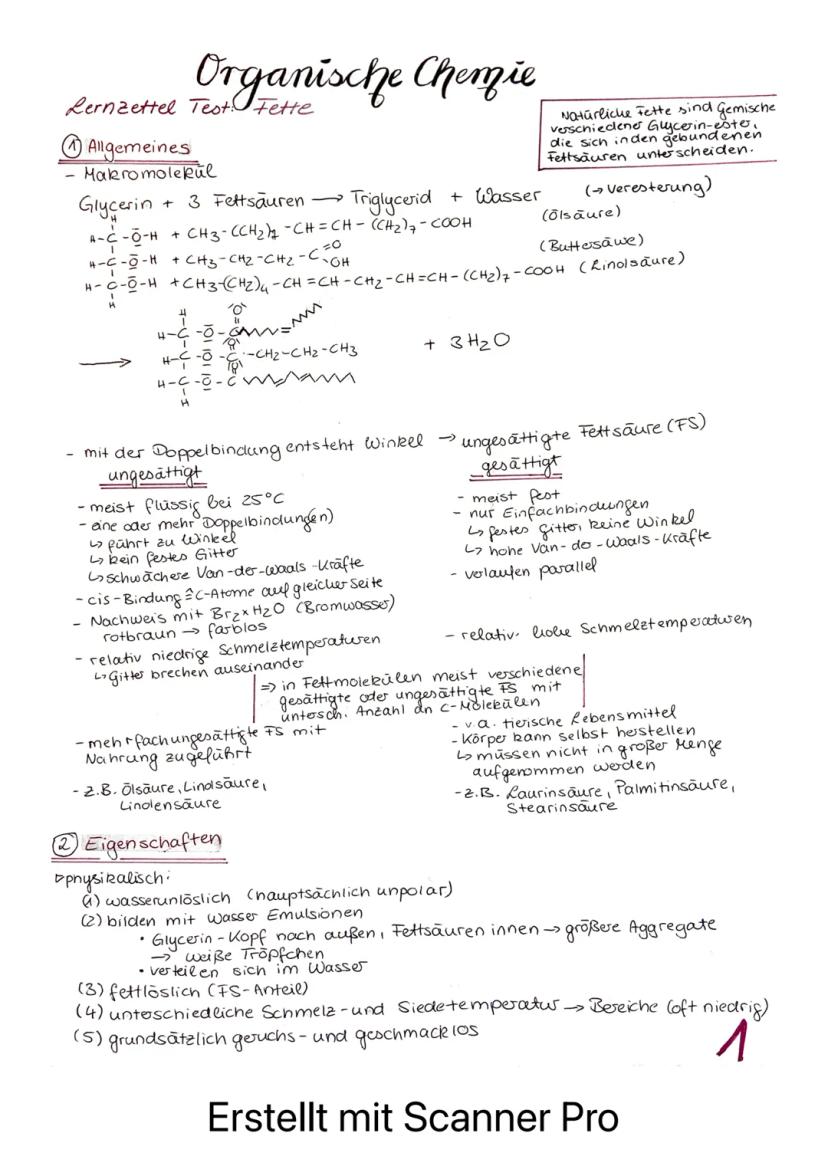 Organische Chemie
Lernzettel Test: Fette
Natürliche Fette sind Gemische
verschiedener Glycerin-ester,
die sich in den gebundenen
Fettsäuren unterscheiden.
① Allgemeines
- Makromolekül
Glycerin + 3 Fettsäuren → Triglycerid + Wasser (→ Veresterung)
H
H-C-O-H + CH3-(CH2)7-CH=CH-(CH2)7-COOH (Ölsäure)
H-C-O-H + CH3-CH2-CH2-C=O OH (Buttersäure)
H-C-O-H + CH3-(CH2)4-CH=CH-CH2-CH=CH-(CH2)7-COOH (Linolsäure)
H
H O
H-C-O-C
H-C-O-C-CH2-CH2-CH3 + 3H2O
→ H-C-O-C
H
- mit der Doppelbindung entsteht Winkel → ungesättigte Fettsäure (FS)
ungesättigt
- meist flüssig bei 25°C
- eine oder mehr Doppelbindung(en)
↳ führt zu Winkel
↳ kein festes Gitter
↳ schwächere Van-der-Waals-Kräfte
- cis-Bindung ≙ C-Atome auf gleicher Seite
- Nachweis mit Br2 x H2O (Bromwasser)
rotbraun → farblos
- relativ niedrige Schmelztemperaturen
↳ Gitter brechen auseinander
gesättigt
- meist fest
- nur Einfachbindungen
↳ festes Gitter, keine Winkel
↳ hohe Van-der-Waals-Kräfte
- verlaufen parallel
- relativ hohe Schmelztemperaturen
⇒ in Fettmolekülen meist verschiedene
gesättigte oder ungesättigte FS mit
untersch. Anzahl an C-Molekülen
- mehrfachungesättigte FS mit
Nahrung zugeführt
- z.B. Ölsäure, Linolsäure,
Linolensäure
- v.a. tierische Lebensmittel
- Körper kann selbst herstellen
↳ müssen nicht in großer Menge
aufgenommen werden
- z.B. Laurinsäure, Palmitinsäure,
Stearinsäure
② Eigenschaften
▷ physikalisch:
(1) wasserunlöslich (hauptsächlich unpolar)
(2) bilden mit Wasser Emulsionen
• Glycerin-Kopf nach außen, Fettsäuren innen → größere Aggregate
→ weiße Tröpfchen
• verteilen sich im Wasser
(3) fettlöslich (FS-Anteil)
(4) unterschiedliche Schmelz- und Siedetemperatur → Bereiche (oft niedrig)
(5) grundsätzlich geruchs- und geschmacklos
1
Erstellt mit Scanner Pro